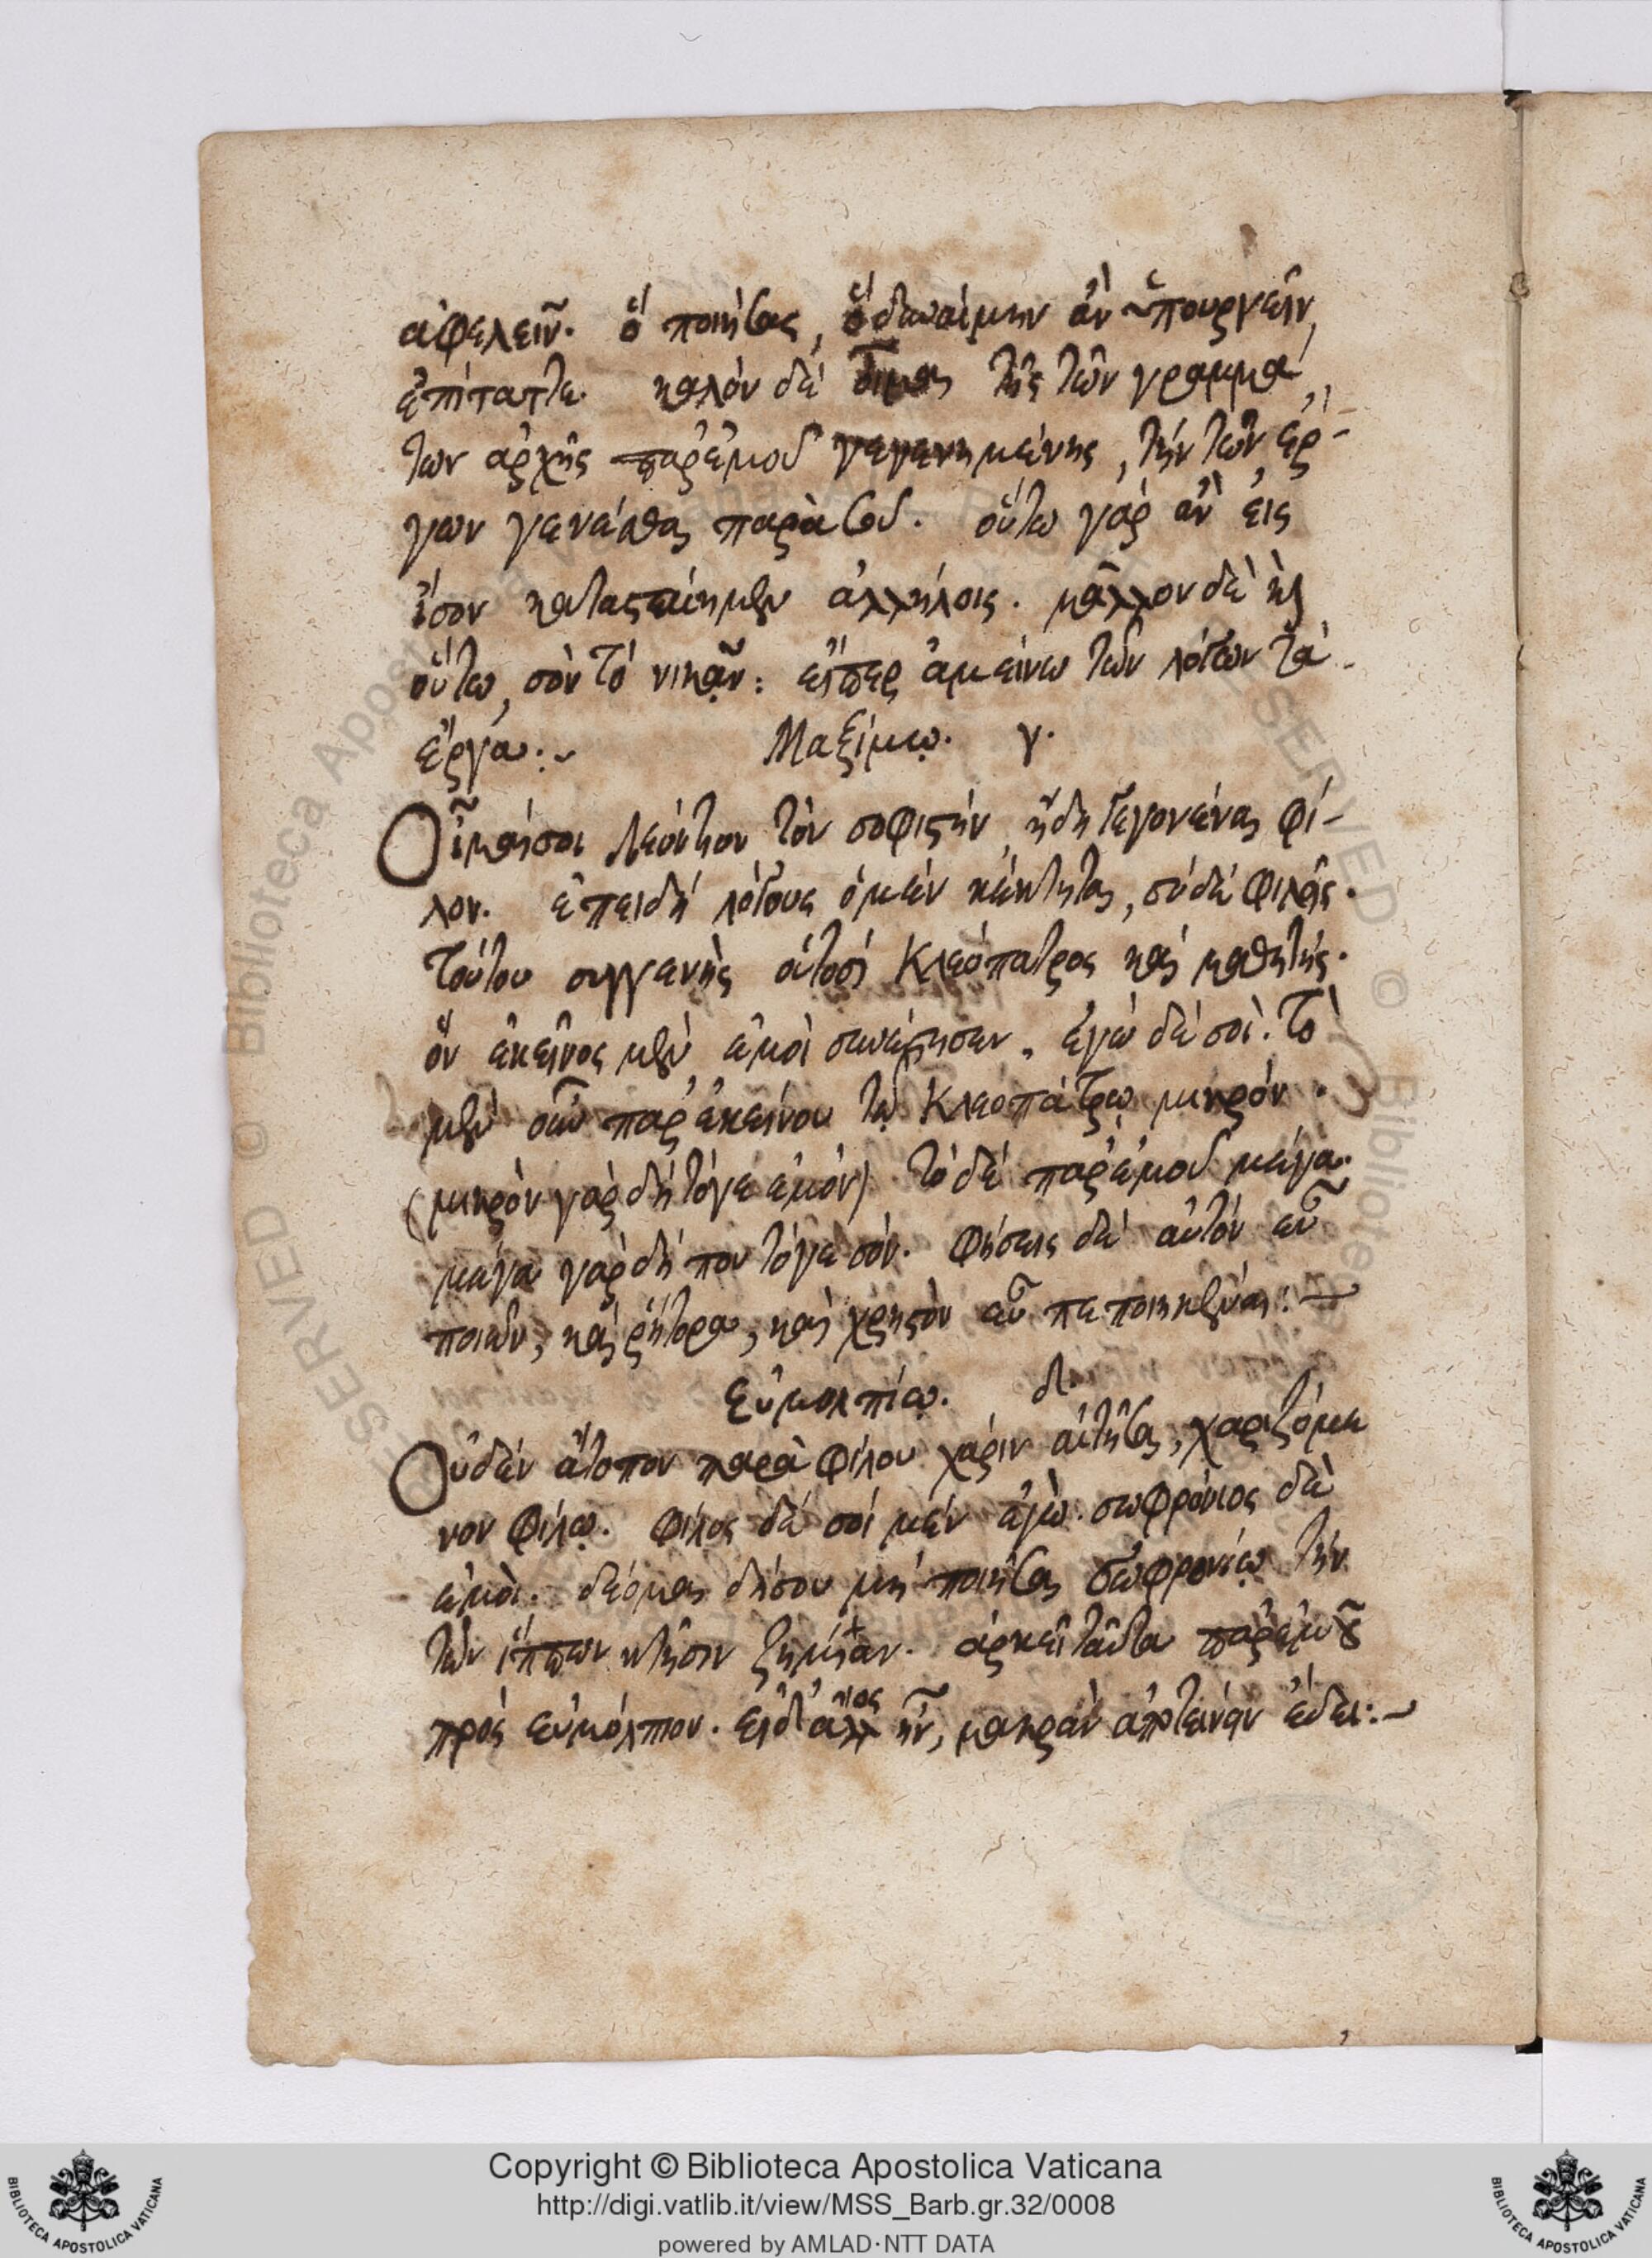 ἀφελεῖν. ὅ ποιήσας, ὅ δυναίμην ἂν ὑπουργεῖν,
ἐπίταττε. καλὸν δὲ οἶμαι τῆς τῶν γραμμά
των ἀρχῆς παρ' ἐμοῦ γεγενημένης, τὴν τῶν ἔρ-
γων γενέσθαι παρὰ σοῦ. οὕτω γὰρ ἂν εἰς
ἴσον κατασταίημεν ἀλλήλοις. μᾶλλον δὲ καὶ
οὕτω, σὸν τὸ νικᾶν: εἴπερ ἀμείνω τῶν λόγων τὰ
ἔργα:~ Μαξίμῳ. γ.
Οἶμαί σοι Λεόντιον τὸν σοφιστὴν, ἤδη γεγονέναι φί-
λον. ἐπειδὴ λόγους ὁ μὲν κέκτηται, σὺ δὲ φιλεῖς.
τούτου συγγενὴς οὑτοσὶ Κλεόπατρος καὶ μαθητής.
ὃν ἐκεῖνος μὲν ἐμοὶ συνέστησεν, ἐγὼ δὲ σοὶ. τὸ
μὲν οὖν παρ' ἐκείνου τῷ Κλεοπάτρῳ μικρόν.
(μικρὸν γὰρ δὴ τό γε ἐμόν) τὸ δὲ παρ' ἐμοῦ μέγα.
μέγα γὰρ δή που τό γε σόν. φήσεις δὲ αὐτὸν εὖ
ποιῶν, καὶ ῥήτορα, καὶ χρηστὸν εὖ πεποιηκέναι:~
Εὐμολπίῳ. δ.
Οὐδὲν ἄτοπον παρὰ φίλου χάριν αἰτῆσαι, χαριζόμε
νον φίλῳ. φίλος δὲ σοὶ μὲν ἐγὼ. σωφρόνιος δὲ
ἐμοὶ. δέομαι δή σου μὴ ποιῆσαι σωφρονίῳ τὴν
τῶν ἵππων κτῆσιν ζημίαν. ἀρκεῖ ταῦτα παρ' ἐμοῦ
πρὸς εὐμόλπιον. εἰ δ' ἄλλος ἦν, μακρὰν ἀποτείνειν ἔδει:~
Copyright © Biblioteca Apostolica Vaticana
http://digi.vatlib.it/view/MSS_Barb.gr.32/0008
powered by AMLAD·NTT DATA